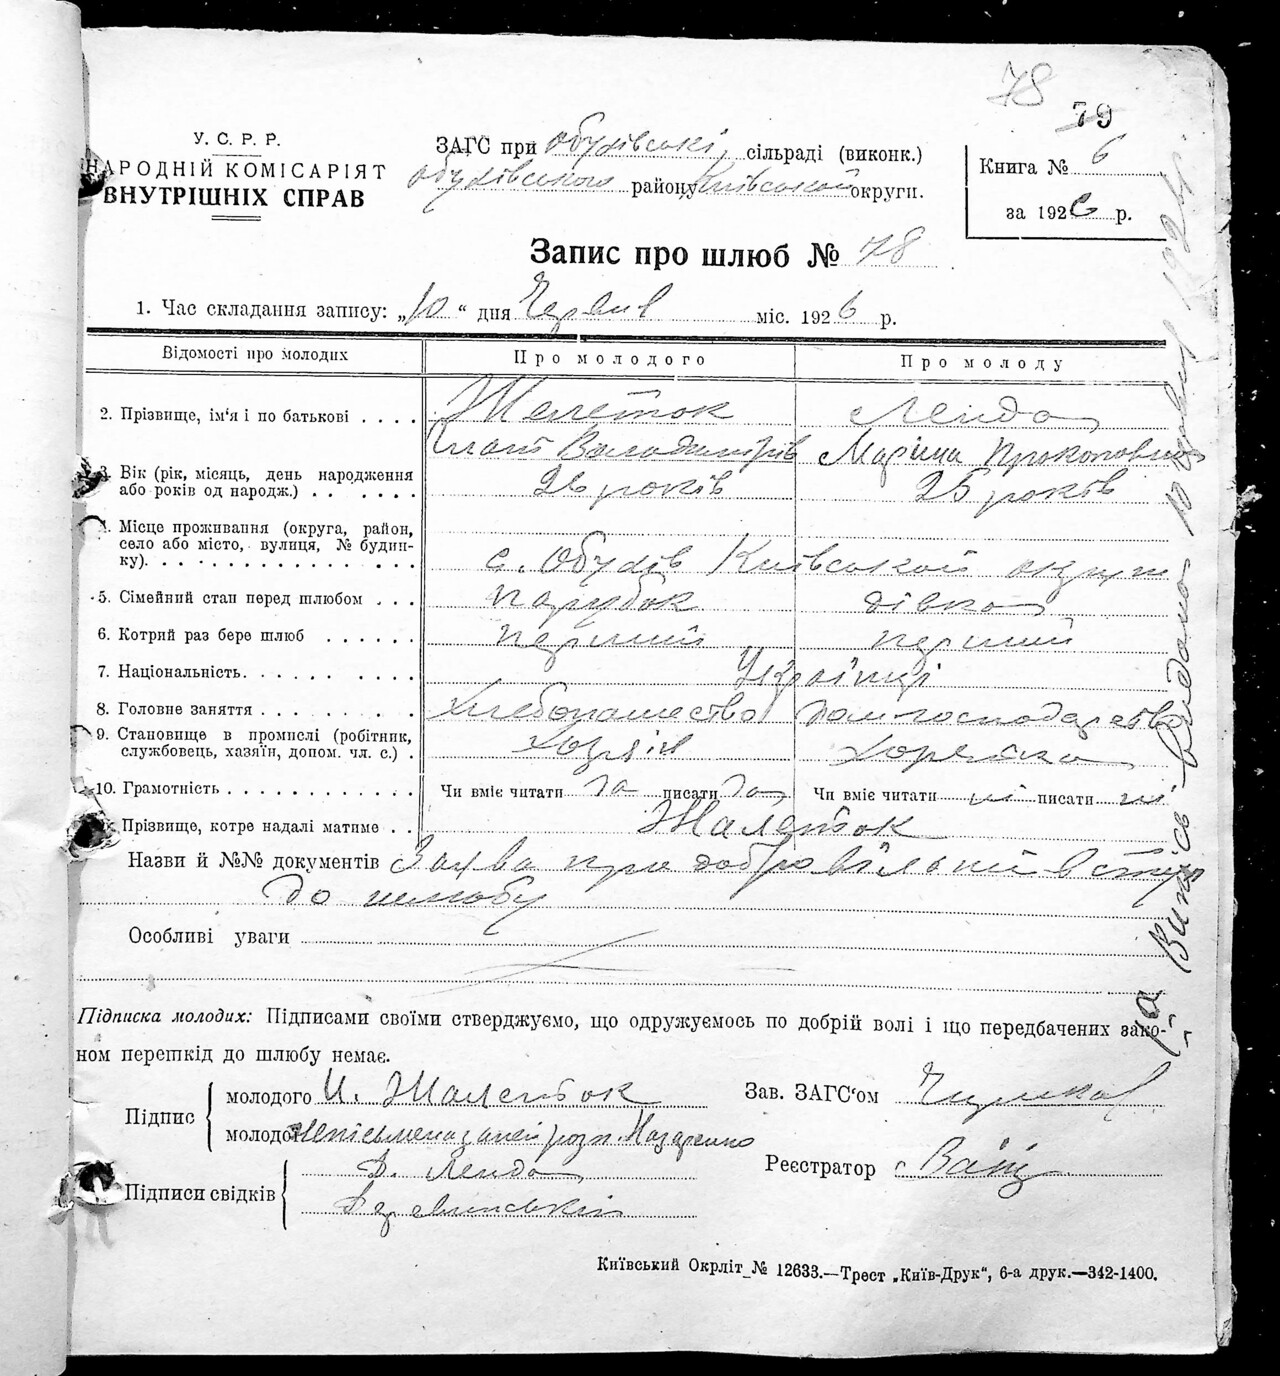 78
79
У. С. Р. Р.
НАРОДНІЙ КОМІСАРІЯТ
ВНУТРІШНІХ СПРАВ
ЗАГС при Обухівські, сільраді (виконк.)
Обухівського району Київської округи.
Книга № 6
за 1926 р.
Запис про шлюб № 78
1. Час складання запису: „10“ дня Червня міс. 1926 р.
Відомості про молодих
Про молодого
Про молоду
2. Прізвище, ім‘я і по батькові . . . . Желеток Ленда
Володимирів Марина Прокоповна
3. Вік (рік, місяць, день народження
або років од народж.) . . . . . . . 26 років 25 років
4. Місце проживання (округа, район,
село або місто, вулиця, № будин-
ку). . . . . . . . . . . . . . . . с. Обухів Київської округи
5. Сімейний стан перед шлюбом . . . парубок дівка
6. Котрий раз бере шлюб . . . . . . перший перший
7. Національність. . . . . . . . . . Українці
8. Головне заняття . . . . . . . . . Хлебопашество домгосподарство
9. Становище в промислі (робітник,
службовець, хазяїн, допом. чл. с.) . Хазяїн
10. Грамотність . . . . . . . . . . . Чи вміє читати да писати да Чи вміє читати ні писати ні
Прізвище, котре надалі матиме . . Жалеток
Назви й №№ документів Заява про добровільний вступ
до шлюбу
Особливі уваги
Підписка молодих: Підписами своїми стверджуємо, що одружуємось по добрій волі і що передбачених зако-
ном перешкід до шлюбу немає.
Підпис
молодого И. Жалеток
молодої неписьмена за ней розп. Назаренко
Підписи свідків
Д. Ленда
Зав. ЗАГС‘ом
Реєстратор
Випись видано 10 червня 192 р.
Київський Окрліт № 12633.—Трест „Київ-Друк“, 6-а друк.—342-1400.